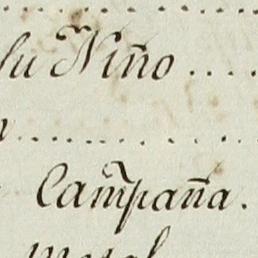 su Niño ....
Campaña.